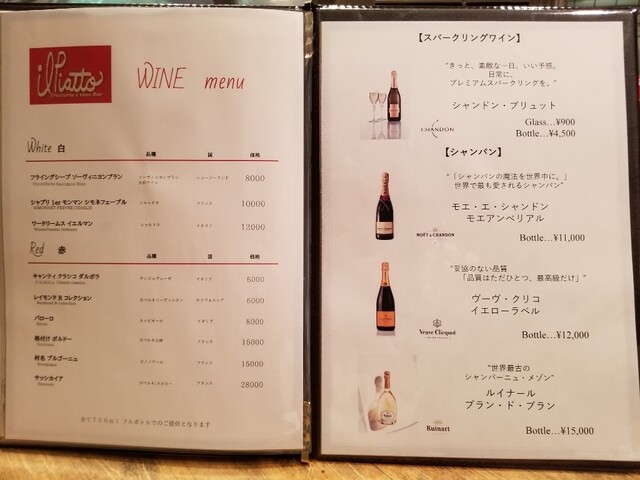 il Piatto
WINE menu
White 白
品種 国 価格
フライングシープ ソーヴィニヨンブラン
ニュージーランド 8000
シャブリ 1er モンマン シモネフェーブル
シャルドネ フランス 10000
ワードリームス イエルマン
シャルドネ イタリア 12000
Red 赤
品種 国 価格
キャンティ クラシコ ダルボラ
サンジョヴェーゼ イタリア 5000
レイモンド R コレクション
カベルネソーヴィニヨン カリフォルニア 6000
バローロ
ネッビオーロ イタリア 8000
格付け ボルドー
フランス 15000
村名 ブルゴーニュ
ピノノワール フランス 15000
サッシカイア
フランス 28000
全て750ml フルボトルでのご提供となります
【スパークリングワイン】
"きっと、素敵な一日、いい予感。
日常に、
プレミアムスパークリングを。"
シャンドン・ブリュット
CHANDON
Glass…¥900
Bottle…¥4,500
【シャンパン】
"「シャンパンの魔法を世界中に。」
世界で最も愛されるシャンパン"
モエ・エ・シャンドン
モエアンペリアル
MOËT & CHANDON
Bottle…¥11,000
"妥協のない品質
「品質はただひとつ、最高級だけ」"
ヴーヴ・クリコ
イエローラベル
Veuve Clicquot
Bottle…¥12,000
"世界最古の
シャンパーニュ・メゾン"
ルイナール
ブラン・ド・ブラン
Ruinart
Bottle…¥15,000